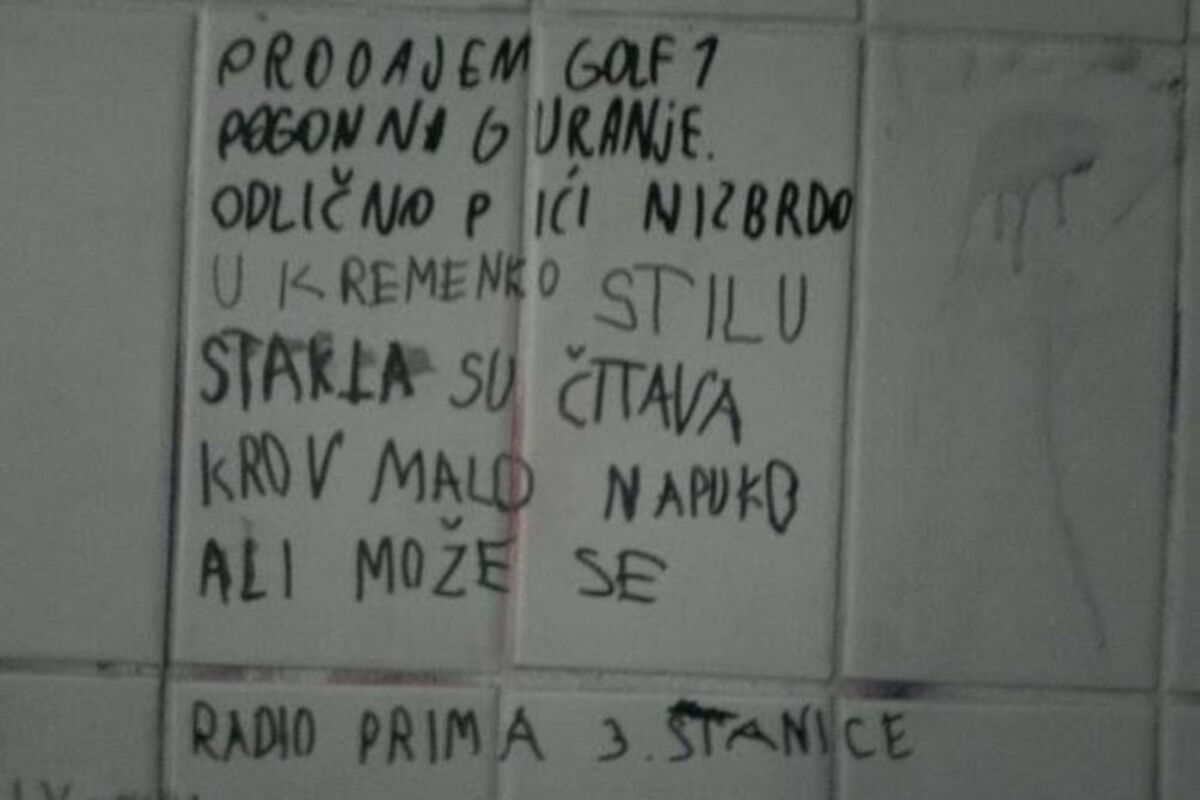 PRODAJEM GOLF 1
POGON NA GURANJE.
ODLIČNO PIĆI NIZBRDO
U KREMENKO STILU
STAKLA SU ČITAVA
KROV MALO NAPUKO
ALI MOŽE SE
RADIO PRIMA 3. STANICE